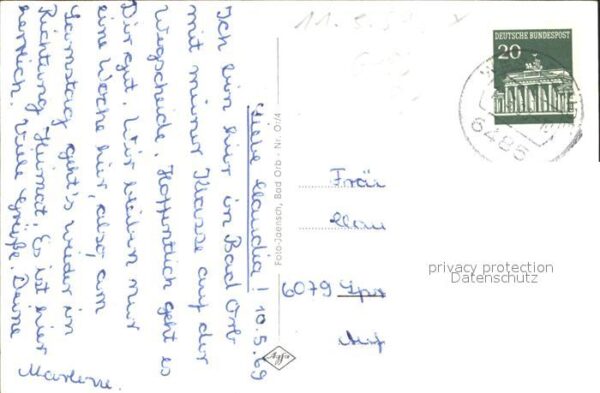 Liebe Claudia! 10.5.69
Ich bin hier in Bad Orb
mit meiner Klasse auf der
Wegscheide. Hoffentlich geht es
Dir gut. Wir bleiben nur
eine Woche hier, also, am
Samstag geht's wieder in
Richtung Heimat. Es ist hier
herrlich. Viele Grüße. Deine
Marlene.
Foto-Jaensch, Bad Orb - Nr. Or/4
Agfa
11. 5.
DEUTSCHE BUNDESPOST
20
6485
Fräu
Clau
6079 Spr
Auf
privacy protection
Datenschutz